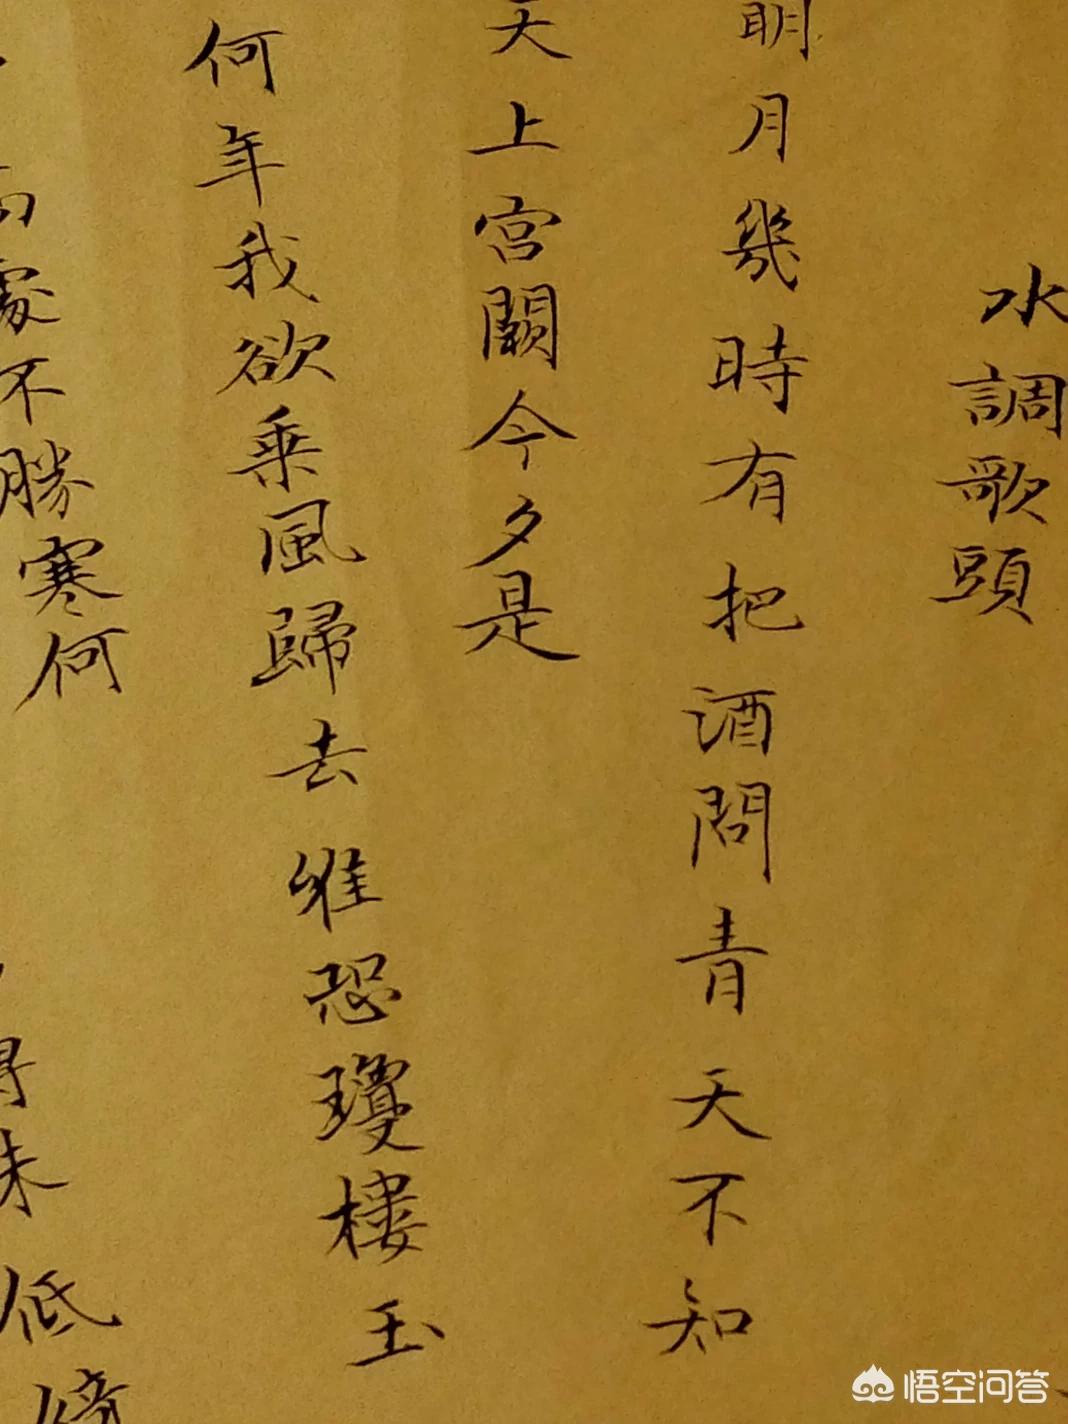 水調歌頭
明月幾時有把酒問青天不知
天上宮闕今夕是
何年我欲乘風歸去惟恐瓊樓玉
高處不勝寒何
得朱
低綺
悟空问答